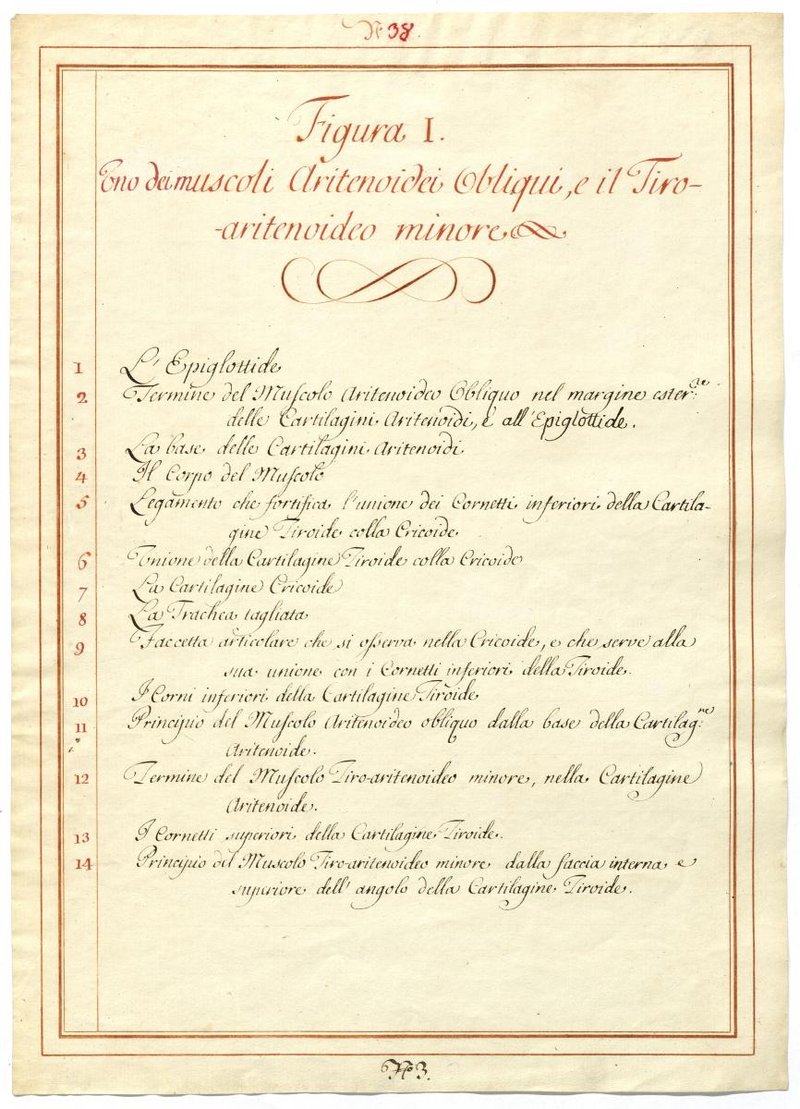 N.º 38.
Figura I.
Uno dei muscoli Aritenoidei Obliqui, e il Tiro-
-aritenoideo minore
1 L' Epiglottide
2 Termine del Muscolo Aritenoideo Obliquo nel margine ester:ne
delle Cartilagini Aritenoidi, e all'Epiglottide.
3 La base delle Cartilagini Aritenoidi
4 Il Corpo del Muscolo
5 Legamento che fortifica l'unione dei Cornetti inferiori della Cartila-
gine Tiroide colla Cricoide
6 Unione della Cartilagine Tiroide colla Cricoide
7 La Cartilagine Cricoide
8 La Trachea tagliata
9 Faccetta articolare che si osserva nella Cricoide, e che serve alla
sua unione con i Cornetti inferiori della Tiroide.
10 I Corni inferiori della Cartilagine Tiroide
11 Principio del Muscolo Aritenoideo obliquo dalla base della Cartilag:ne
Aritenoide.
12 Termine del Muscolo Tiro-aritenoideo minore, nella Cartilagine
Aritenoide.
13 I Cornetti superiori della Cartilagine Tiroide.
14 Principio del Muscolo Tiro-aritenoideo minore dalla faccia interna e
superiore dell' angolo della Cartilagine Tiroide.
3.